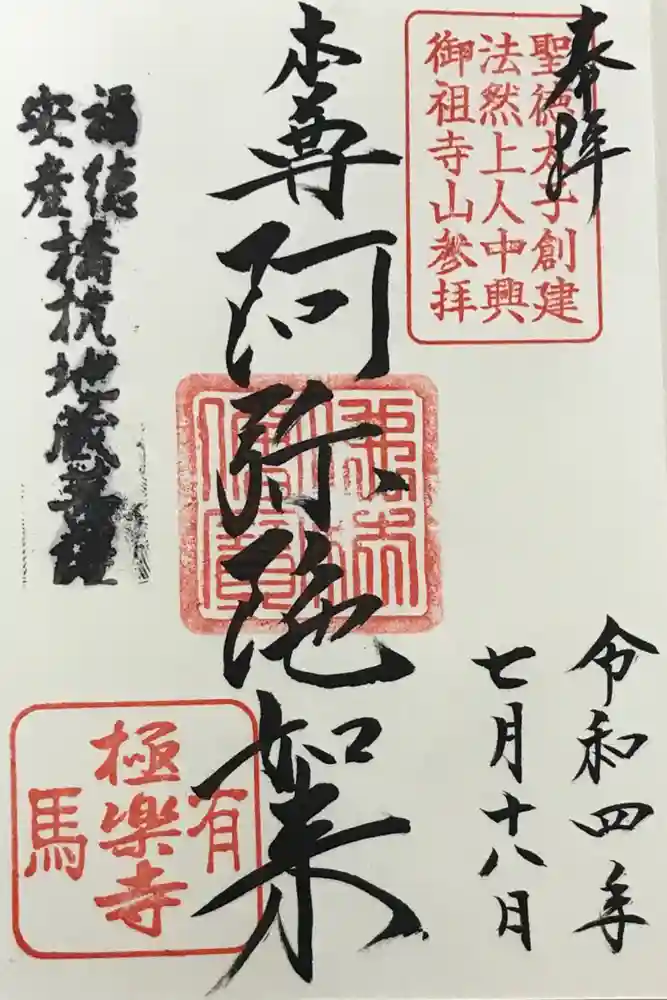 奉拝
聖徳太子創建
法然上人中興
御祖寺山参拝
令和四年
七月十八日
本尊阿弥陀如来
福徳
安産
橋杭地蔵
有馬
極楽寺